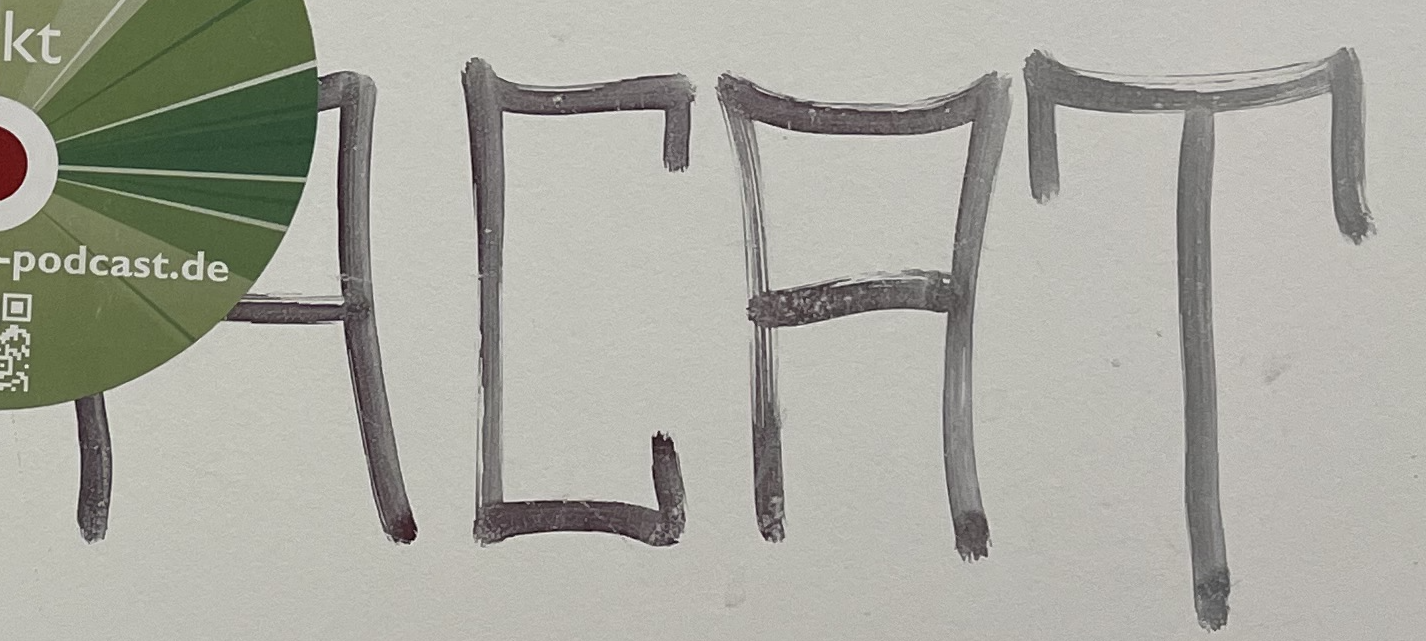 kt
-podcast.de
ACAT